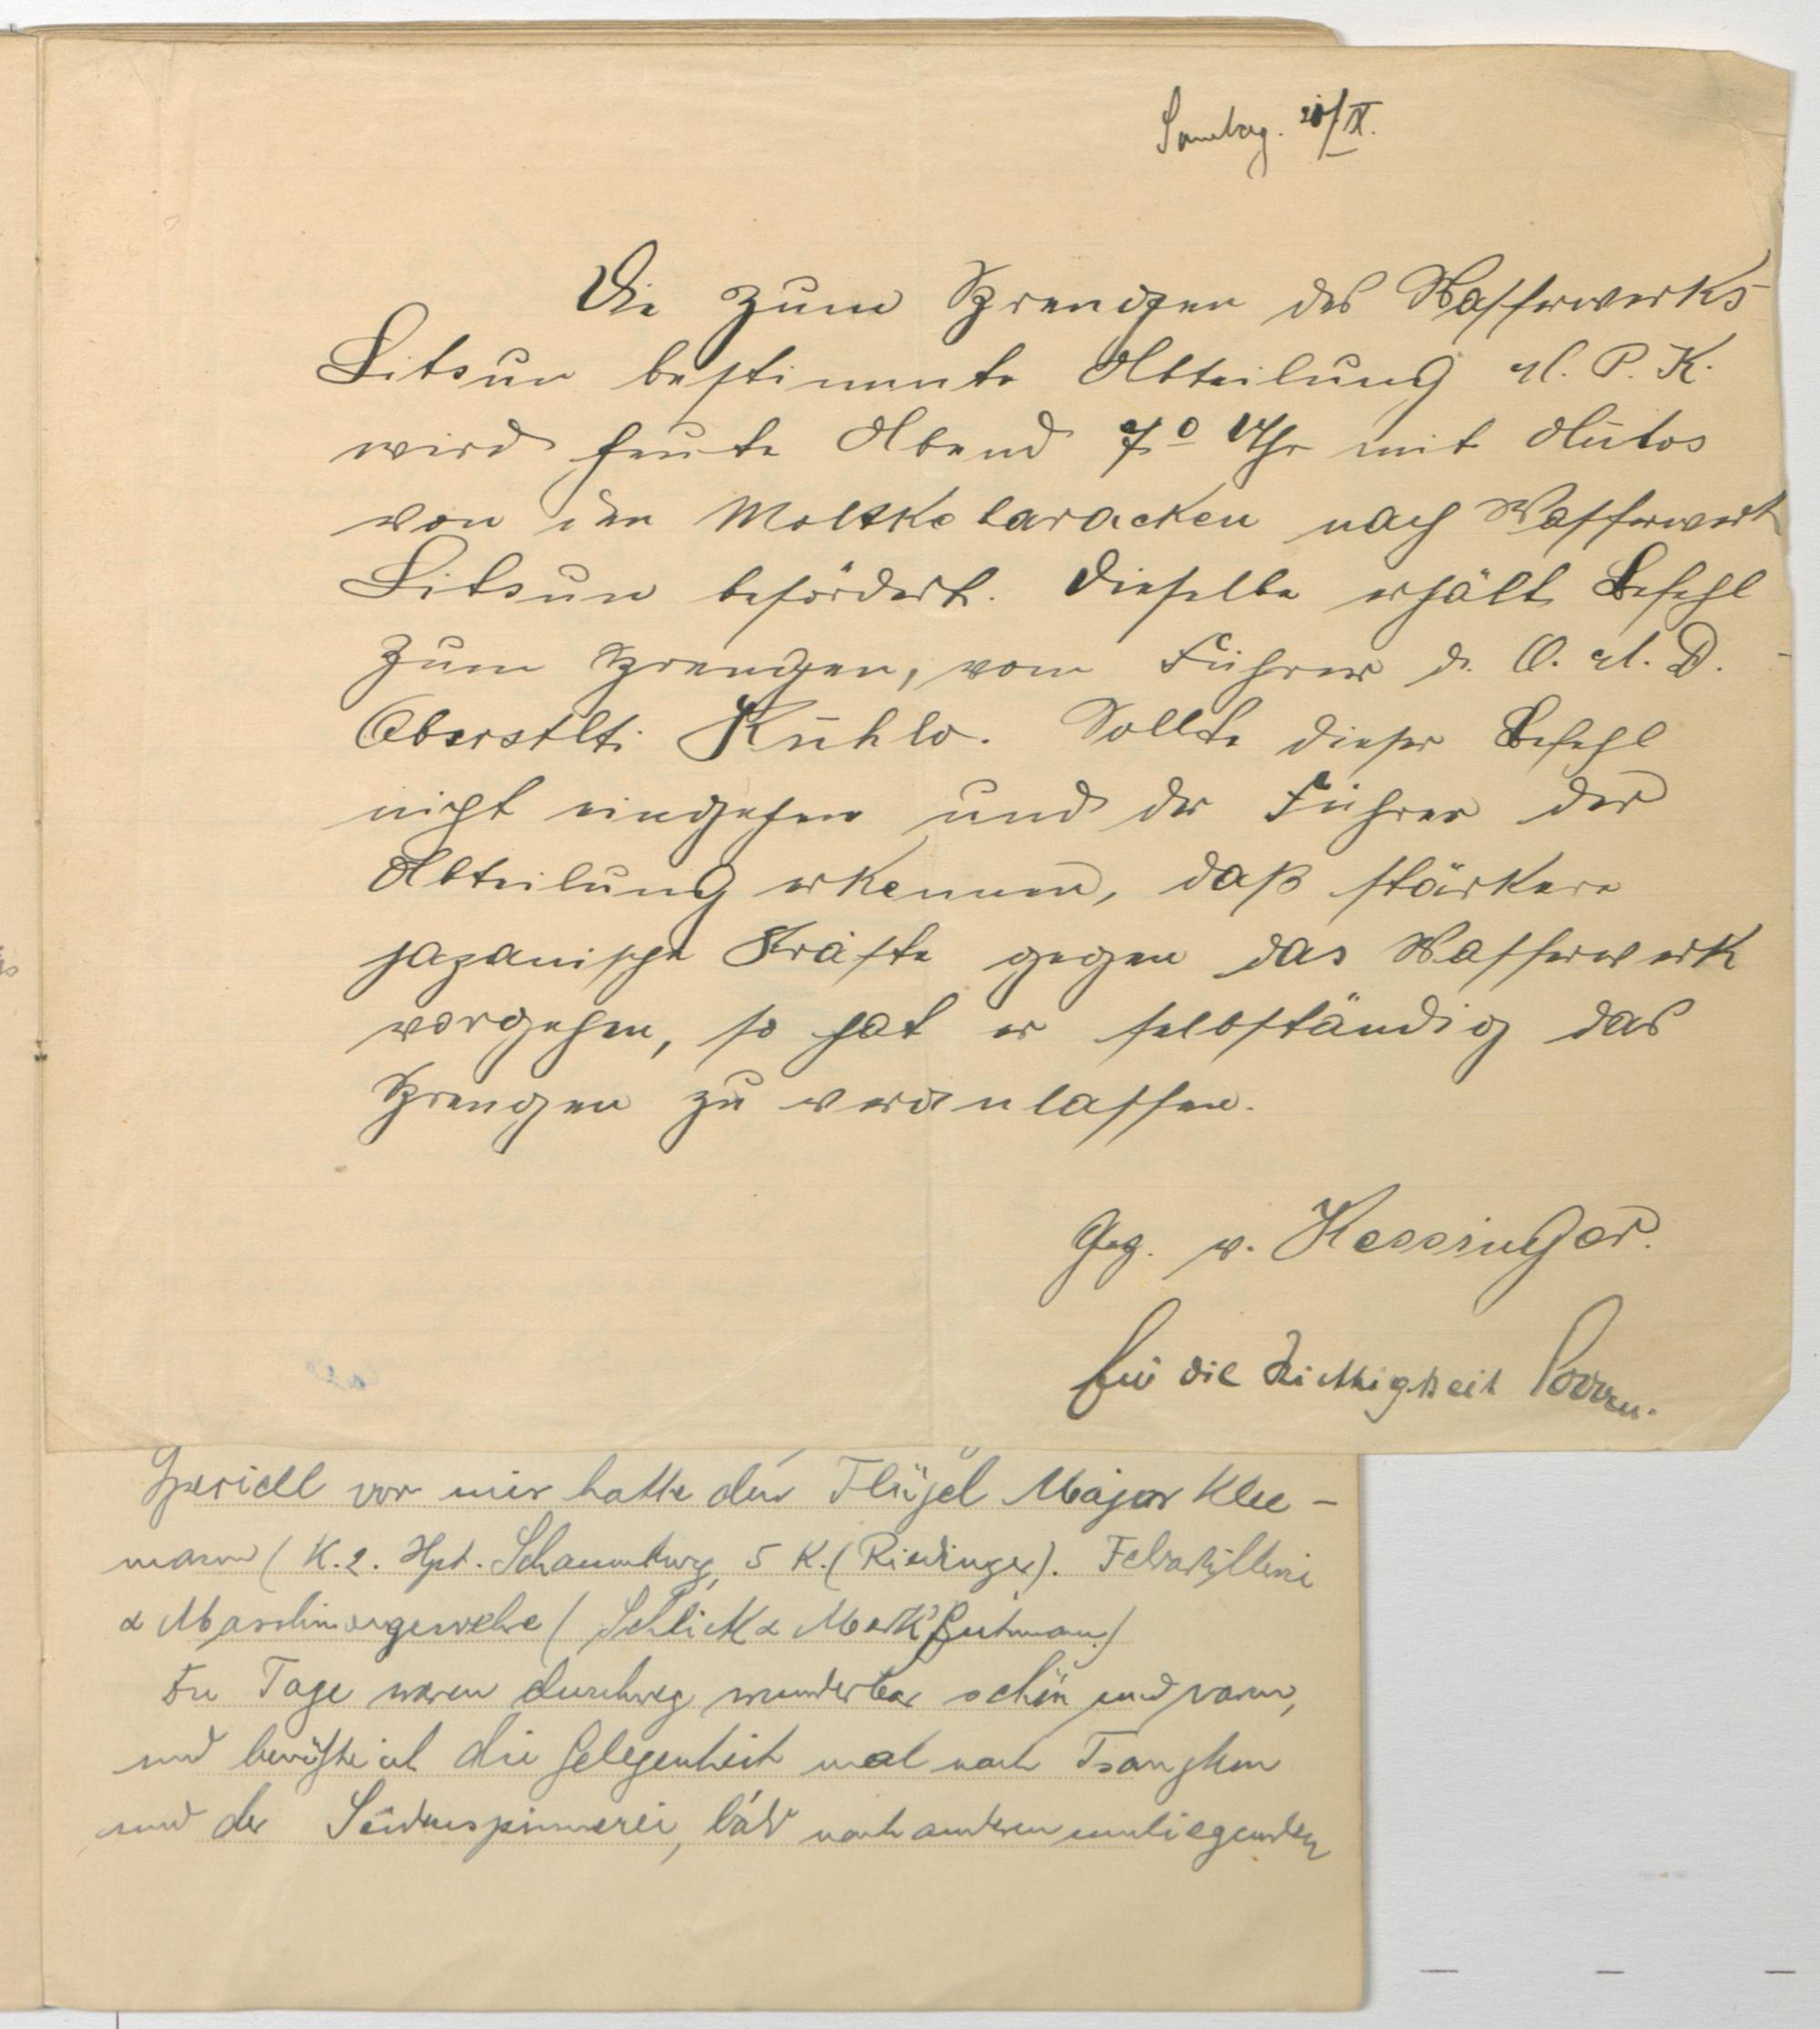 Sonntag. 20/IX.
Die zum Sprengen des Wasserwerks
Litsun bestimmte Abteilung M. P. K.
wird heute Abend 7⁰ Uhr mit Autos
von den Moltkebaracken nach Wasserwerk
Litsun befördert. Dieselbe erhält Befehl
zum Sprengen, vom Führer d. O. M. D.
Oberstlt. Kuhlo. Sollte dieser Befehl
nicht eingehen und der Führer der
Abteilung erkennen, daß stärkere
japanische Kräfte gegen das Wasserwerk
vorgehen, so hat er selbständig das
Sprengen zu veranlassen.
Gez. v. Kessinger.
für die Richtigkeit
Speciell vor mir hatte den Flügel Major Klee-
mann (K. 2. Hpt. Schaumburg, 5 K. (Riedinger). Feldartillerie
& Maschinengewehre (Schlick &
Die Tage waren durchweg wunderbar schön und warm,
und benützte ich die Gelegenheit mal nach Tsangkou
und der Seidenspinnerei, bald nach anderen umliegenden